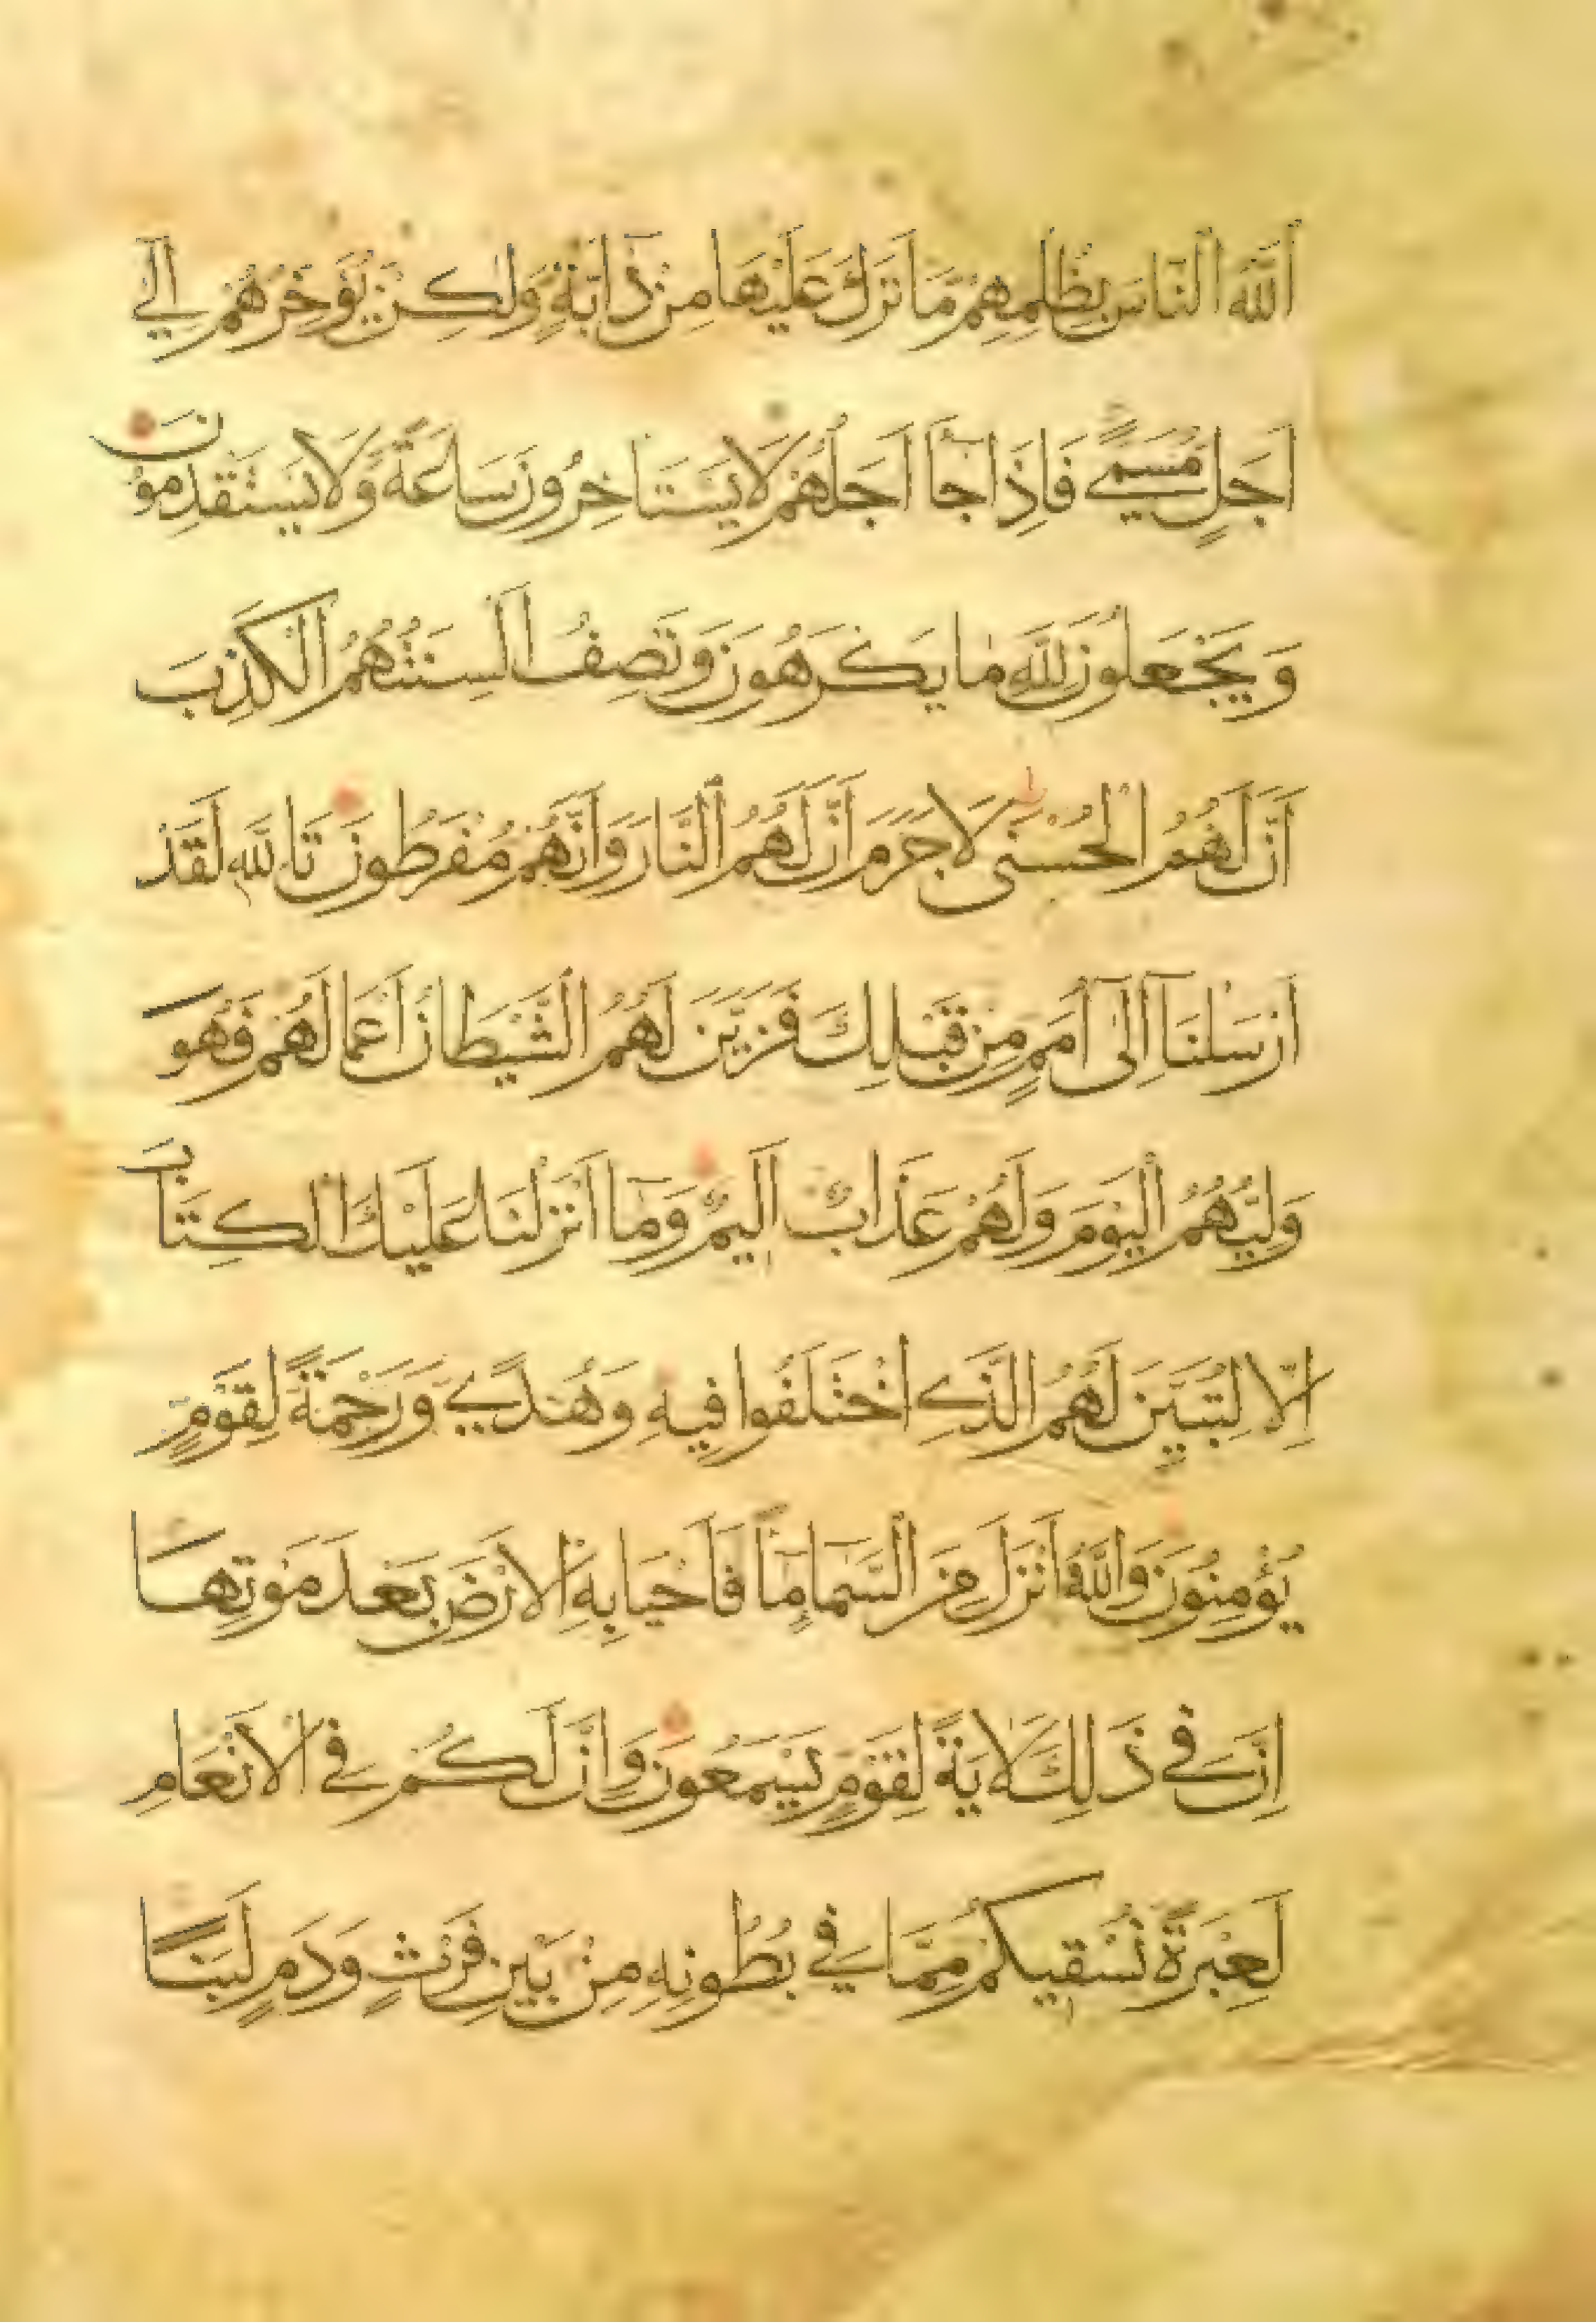 اَللّٰهُ النَّاسَ بِظُلْمِهِمْ مَا تَرَكَ عَلَيْهَا مِنْ دَابَّةٍ وَلٰكِنْ يُؤَخِّرُهُمْ اِلٰي
اَجَلٍ مُسَمًّي فَاِذَا جَآ اَجَلُهُمْ لَا يَسْتَاخِرُونَ سَاعَةً وَّلَا يَسْتَقْدِمُونَ
وَيَجْعَلُونَ لِلّٰهِ مَا يَكْرَهُونَ وَتَصِفُ اَلْسِنَتُهُمُ الْكَذِبَ
اَنَّ لَهُمُ الْحُسْنٰى لَا جَرَمَ اَنَّ لَهُمُ النَّارَ وَاَنَّهُمْ مُفْرَطُونَ تَاللّٰهِ لَقَدْ
اَرْسَلْنَآ اِلٰٓى اُمَمٍ مِنْ قَبْلِكَ فَزَيَّنَ لَهُمُ الشَّيْطَانُ اَعْمَالَهُمْ فَهُوَ
وَلِيُّهُمُ الْيَوْمَ وَلَهُمْ عَذَابٌ اَلِيمٌ وَمَآ اَنْزَلْنَا عَلَيْكَ الْكِتَابَ
اِلَّا لِتُبَيِّنَ لَهُمُ الَّذِي اخْتَلَفُوا فِيهِ وَهُدًي وَرَحْمَةً لِقَوْمٍ
يُؤْمِنُونَ وَاللّٰهُ اَنْزَلَ مِنَ السَّمَآ مَآً فَاَحْيَا بِهِ الْاَرْضَ بَعْدَ مَوْتِهَا
اِنَّ فِي ذَلِكَ لَاٰيَةً لِقَوْمٍ يَسْمَعُونَ وَاِنَّ لَكُمْ فِي الْاَنْعَامِ
لَعِبْرَةً نُسْقِيكُمْ مِمَّا فِي بُطُونِهِ مِنْ بَيْنِ فَرْثٍ وَدَمٍ لَبَنًا